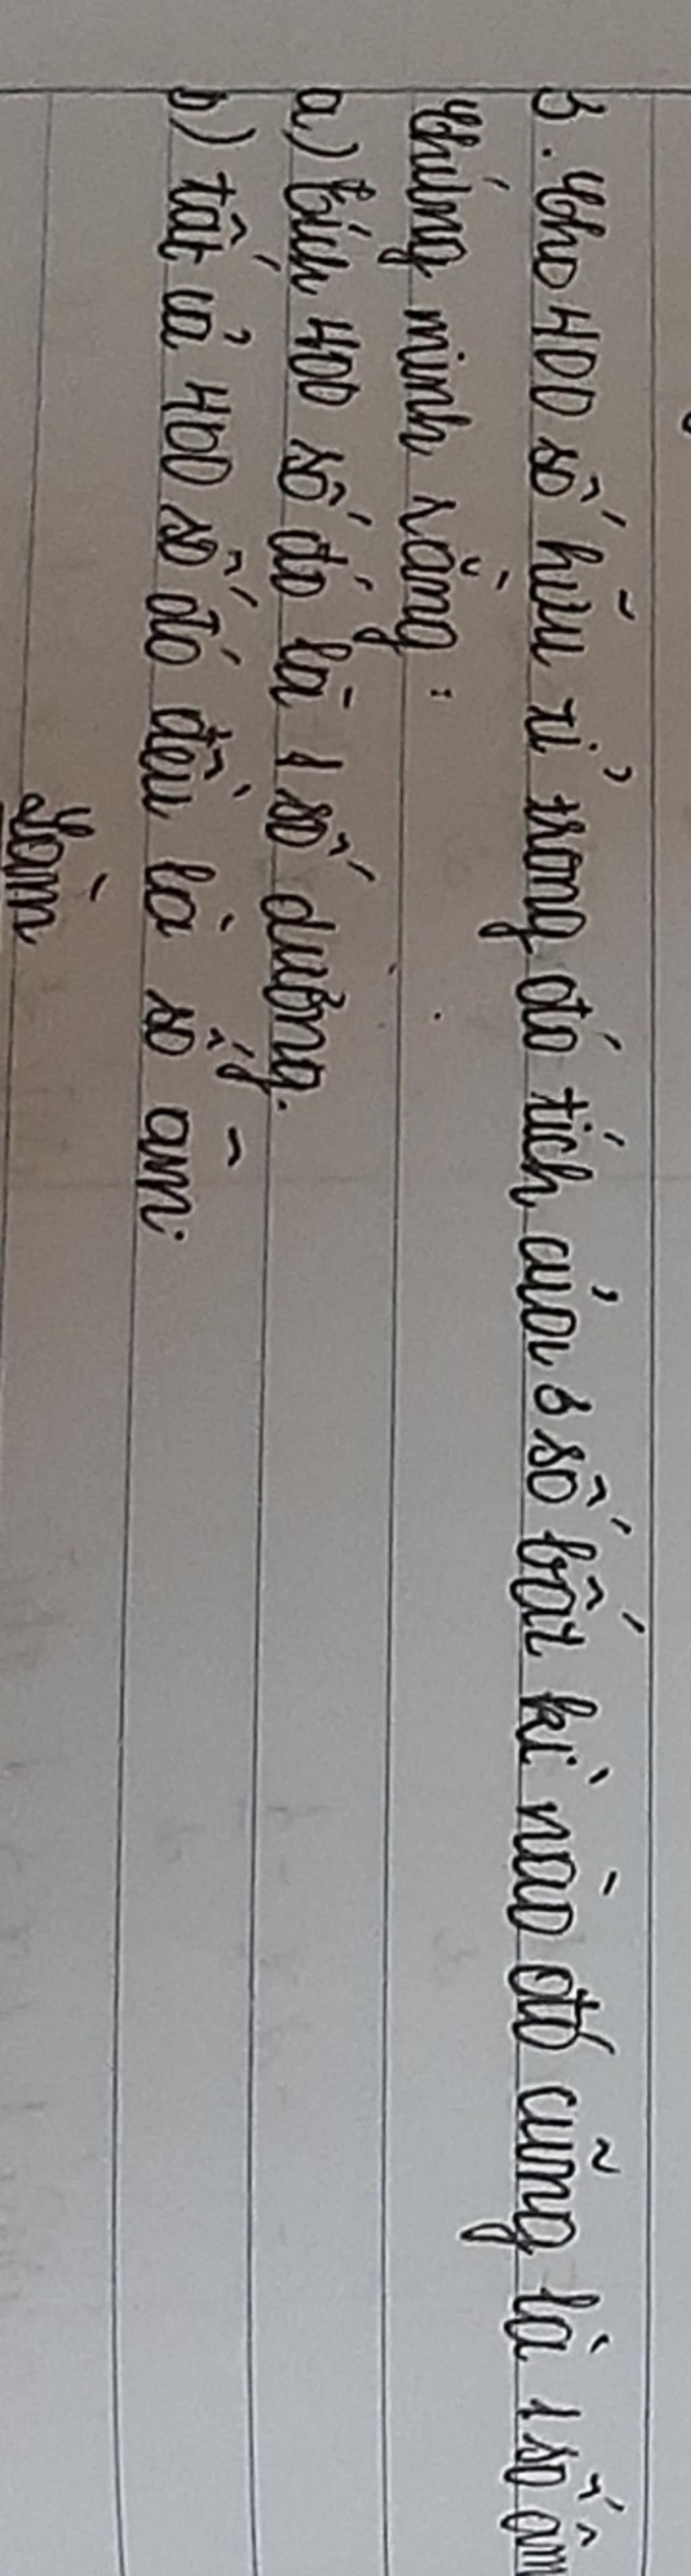 3. Cho 400 số hữu tỉ trong đó tích của 3 số bất kì nào đó cũng là 1 số âm
Chứng minh rằng:
a) Tích 400 số đó là 1 số dương.
b) tất cả 400 số đó đều là số âm.
Làm